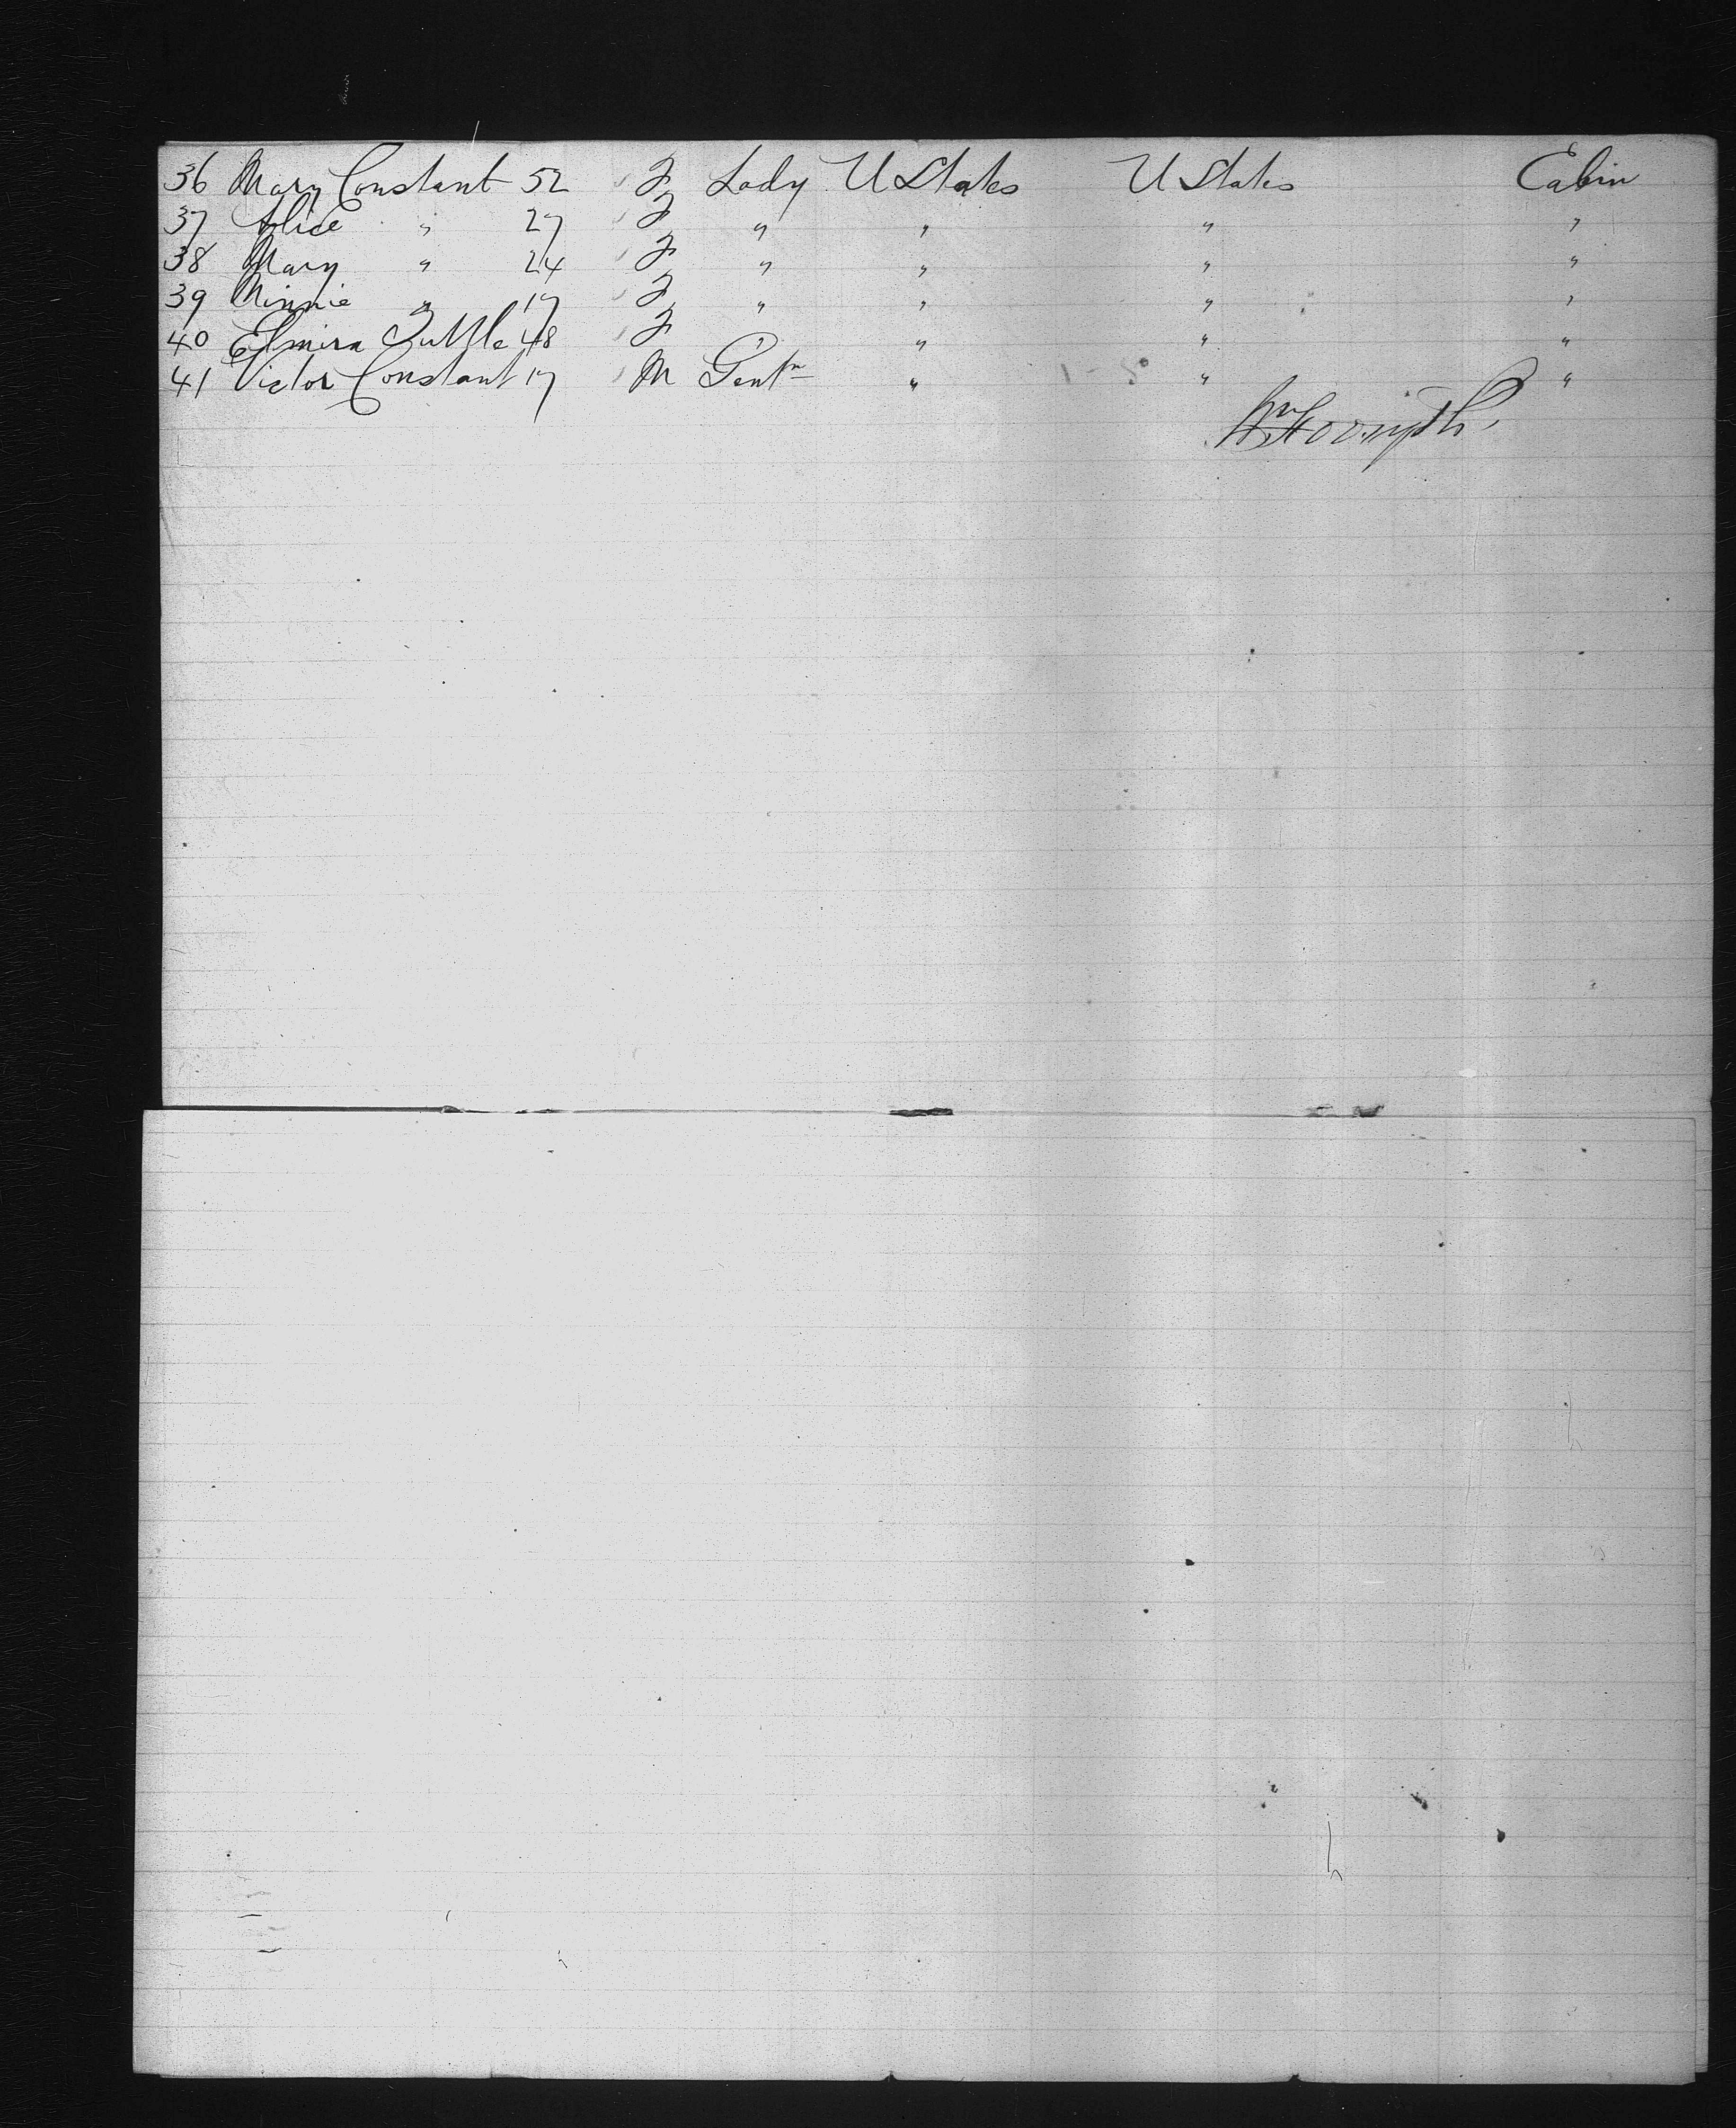 36 Mary Constant 52 F Lady U States U States Cabin
37 Alice " 27 F " " " "
38 Mary " 24 F " " " "
39 Minnie " 17 F " " " "
40 Elmira Tuttle 48 F " " " "
41 Victor Constant 17 M Gentn " " "